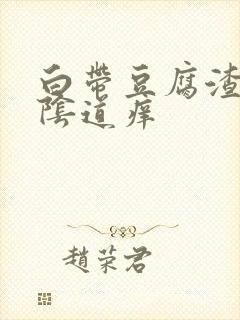 白帶豆腐渣
陰道痒
趙荣君